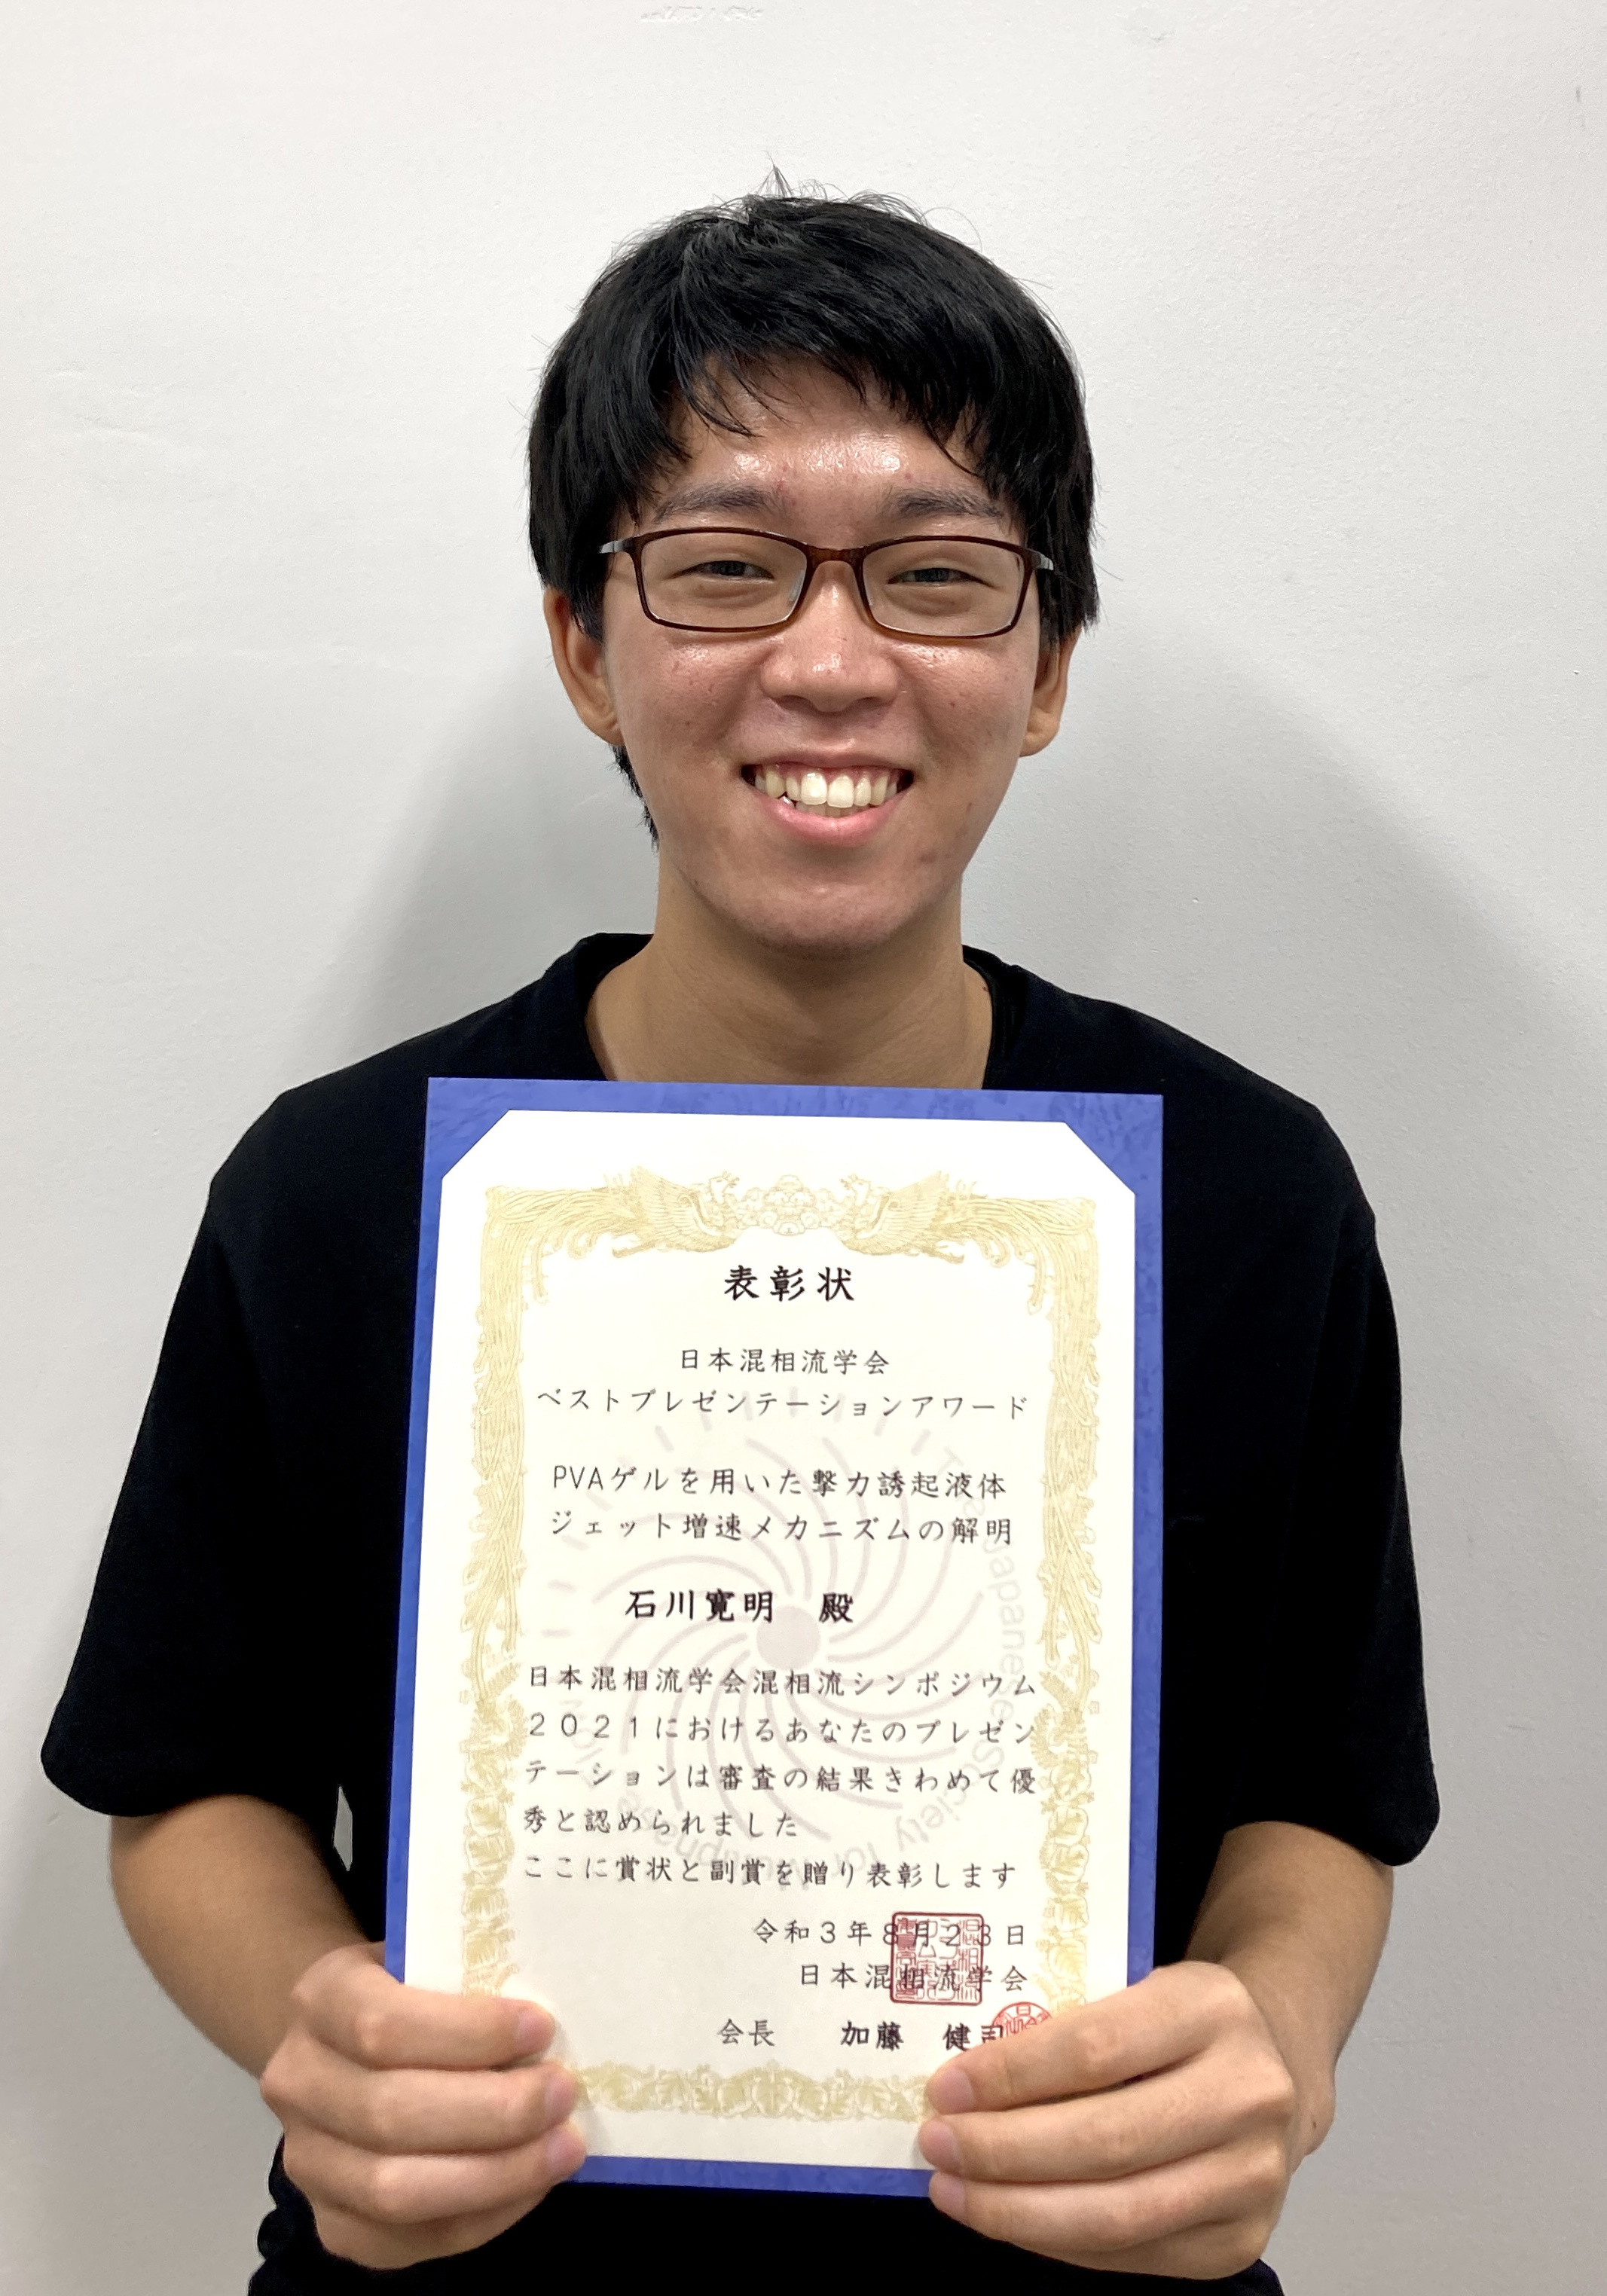 表彰状
日本混相流学会
ベストプレゼンテーションアワード
PVAゲルを用いた撃力誘起液体
ジェット増速メカニズムの解明
石川寛明　殿
日本混相流学会混相流シンポジウム
２０２１におけるあなたのプレゼン
テーションは審査の結果きわめて優
秀と認められました
ここに賞状と副賞を贈り表彰します
令和３年８月２３日
日本混相流学会
会長　加藤　健司